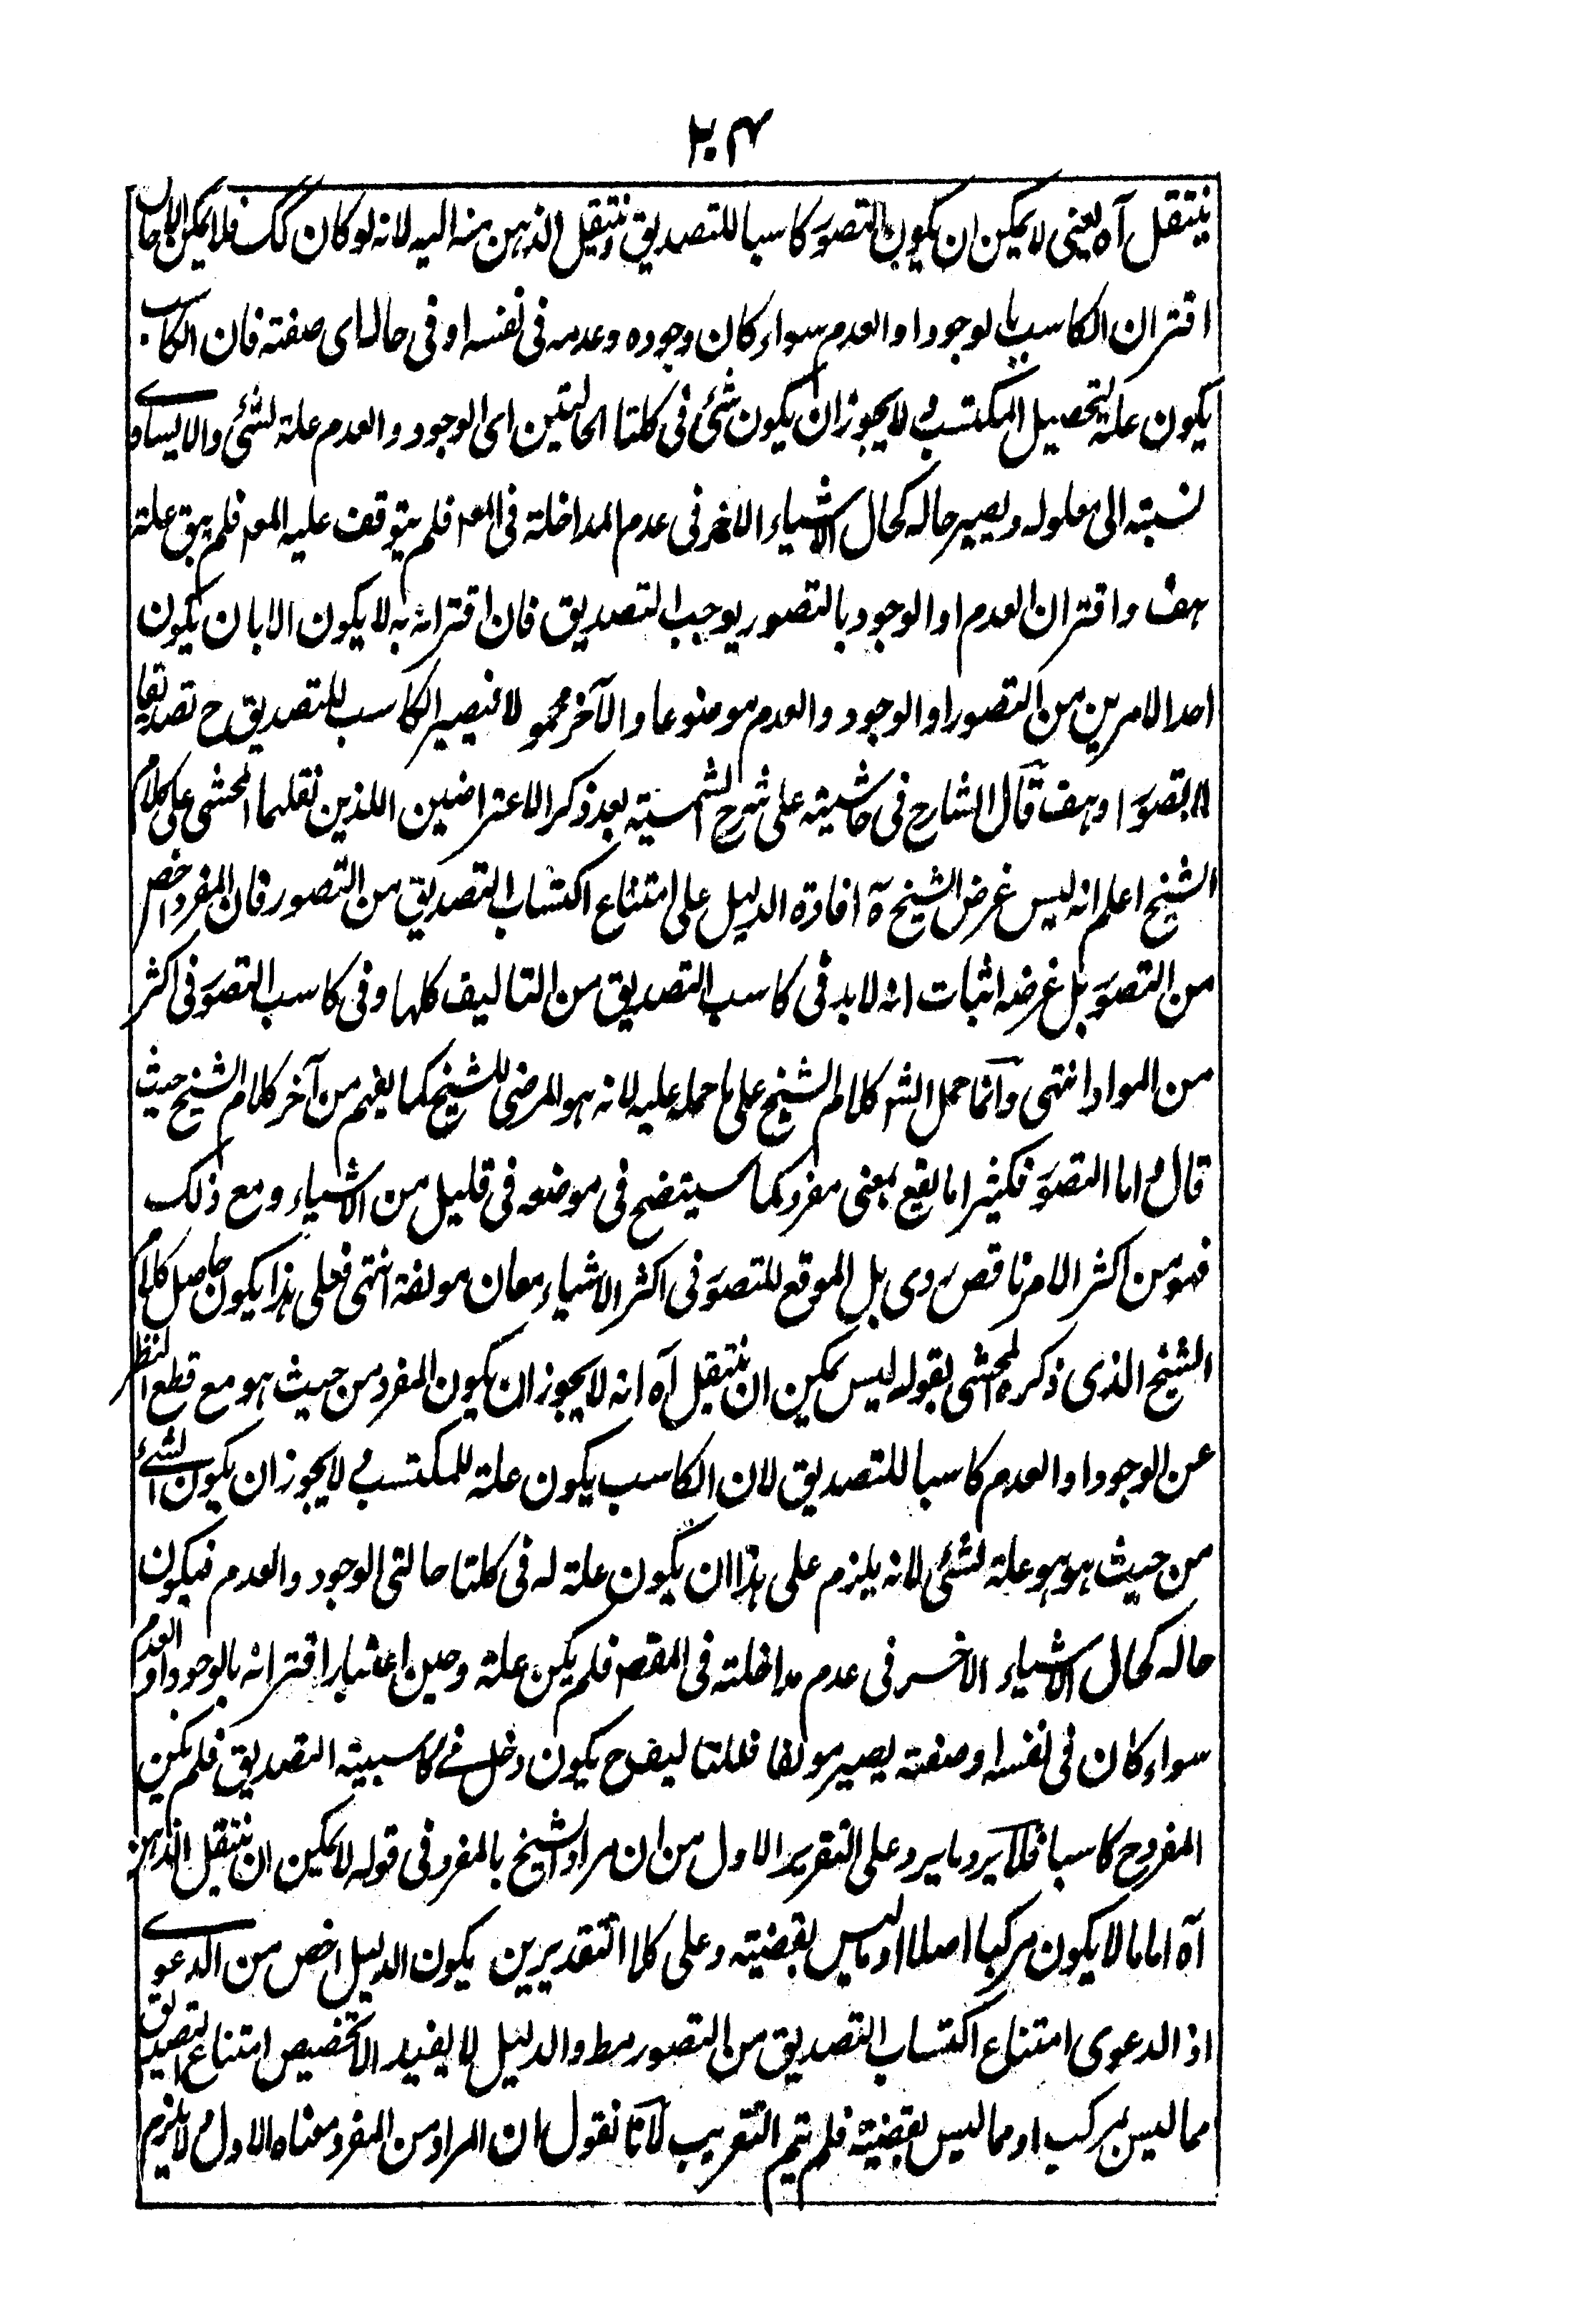 ٢٠٤
ينتقل آه يعنى لا يمكن ان يكون التصوَر كاسبا للتصديق وينتقل الذهن منه اليه لانه لو كان كك فلا يمكن الا حال
اقتران الكاسب بالوجود او العدم سواء كان وجوده وعدمه فى نفسه او فى حاله اى صفته فان الكاسب
يكون علة لتحصيل المكتسب و لا يجوز ان يكون شئ فى كلتا الحالتين اى الوجود والعدم علة لشئ والا يساوى
نسبته الى معلوله ويصير حاله كحال الاشياء الاخر فى عدم المداخلة فى المعـ فلم يتوقف عليه المعـ فلم يبق علة
هف واقتران العدم او الوجود بالتصور يوجب التصديق فان اقترانه به لا يكون الا بان يكون
احد الامرين من التصور او الوجود والعدم موضوعا والآخر محمولا فيصير الكاسب للتصديق ح تصديقا
لا تصوَرا وهف قال الشارح فى حاشيته على شرح الشمسية بعد ذكر الاعتراضين اللذين نقلهما المحشى على كلام
الشيخ اعلم انه ليس غرض الشيخ آه افادة الدليل على امتناع اكتساب التصديق من التصور فان المفرد اخص
من التصوَر بل غرضه اثبات انه لا بد فى كاسب التصديق من التاليف كلها وفى كاسب التصوَر فى اكثر
من المواد انتهى وانما حمل الشـ كلام الشيخ على ما حمله عليه لانه هو المرضى للشيخ كما يفهم من آخر كلام الشيخ حيث
قال و اما التصوَر فكثيرا ما يقع بمعنى مفرد كما سيتضح فى موضعه فى قليل من الاشياء ومع ذلك
فهو من اكثر الامر ناقص ردى بل الموقع للتصوَر فى اكثر الاشياء معان مولفة انتهى فعلى هذا يكون حاصل كلام
الشيخ الذى ذكره المحشى بقوله ليس يمكن ان ينتقل آه انه لا يجوز ان يكون المفرد من حيث هو مع قطع النظر
عن الوجود او العدم كاسبا للتصديق لان الكاسب يكون علة للمكتسب و لا يجوز ان يكون الشئ
من حيث هو هو علة لشئ لانه يلزم على هذا ان يكون علة له فى كلتا حالتى الوجود والعدم فيكون
حاله كحال الاشياء الاخر فى عدم مداخلته فى المقصـ فلم يكن علة وحين اعتبار اقترانه بالوجود او العدم
سواء كان فى نفسه او صفته يصير مولفا فللتاليف ح يكون دخل فى كاسبية التصديق فلم يكن
المفرد ح كاسبا فلا يرد ما يرد على التقرير الاول من ان مراد الشيخ بالمفرد فى قوله لا يمكن ان ينتقل الذهن
آه اما ما لا يكون مركبا اصلا او ما ليس بقضية وعلى كلا التقديرين يكون الدليل اخص من الدعوى
اذ الدعوى امتناع اكتساب التصديق من التصور مط والدليل لا يفيد الا تخصيص امتناع التصديق
مما ليس بمركب او مما ليس بقضية فلم يتم التقريب لانا نقول ان المراد من المفرد معناه الاول و لا يلزم